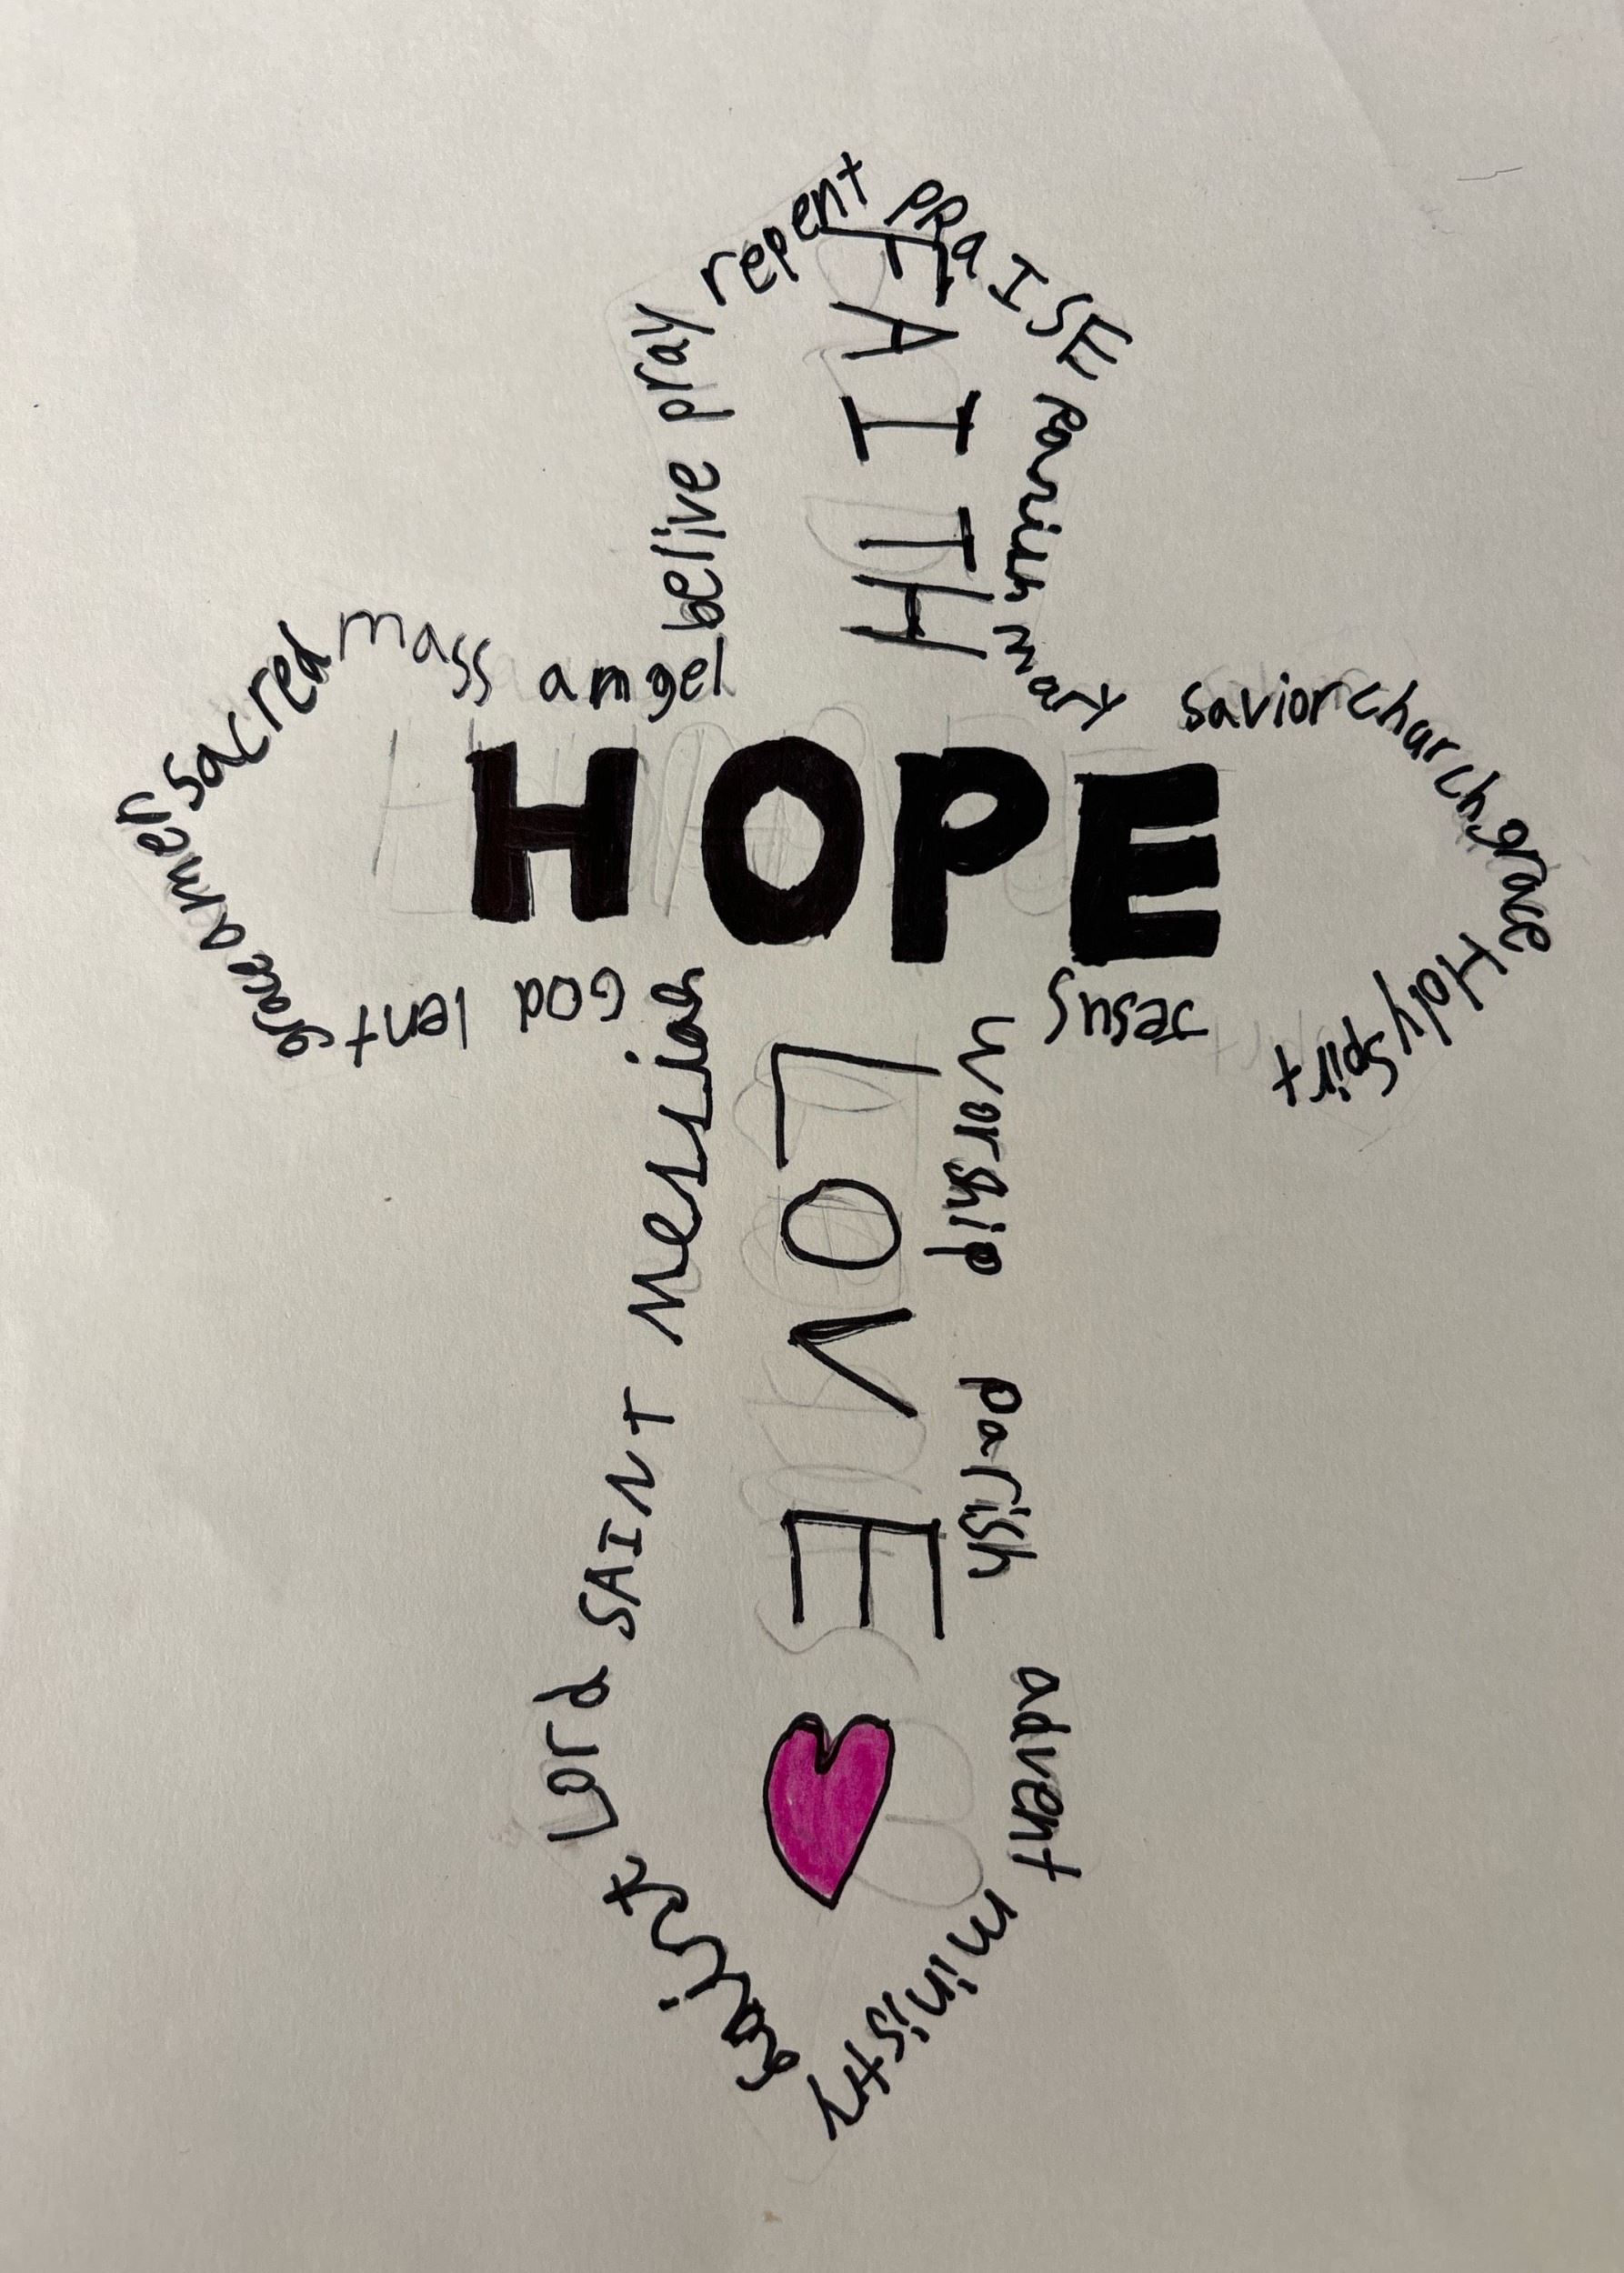 repent
PRaISE
Parish
mary
savior
church
grace
Holy Spirt
Jesus
worship
parish
advent
ministry
Christ
Lord
SAINT
Messiah
GOD
lent
grace
amen
sacred
mass
angel
belive
pray
FAITH
HOPE
LOVE